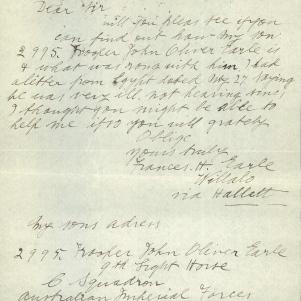 Dear Sir
will you pleas see if you
can find out how my son
2995. Trooper John Oliver Earle is
& what was rong with him, I had
a litter from Egypt dated Nov 27 saying
he was very ill. not hearing since
I thought you might be able to
help me if so you will grately
Oblige
yours truly
Frances. H. Earle
Willalo
via Hallett
My sons adress
2995. Trooper John Oliver Earle
9th Light Horse
C Squadron
Australian Imperial Forces